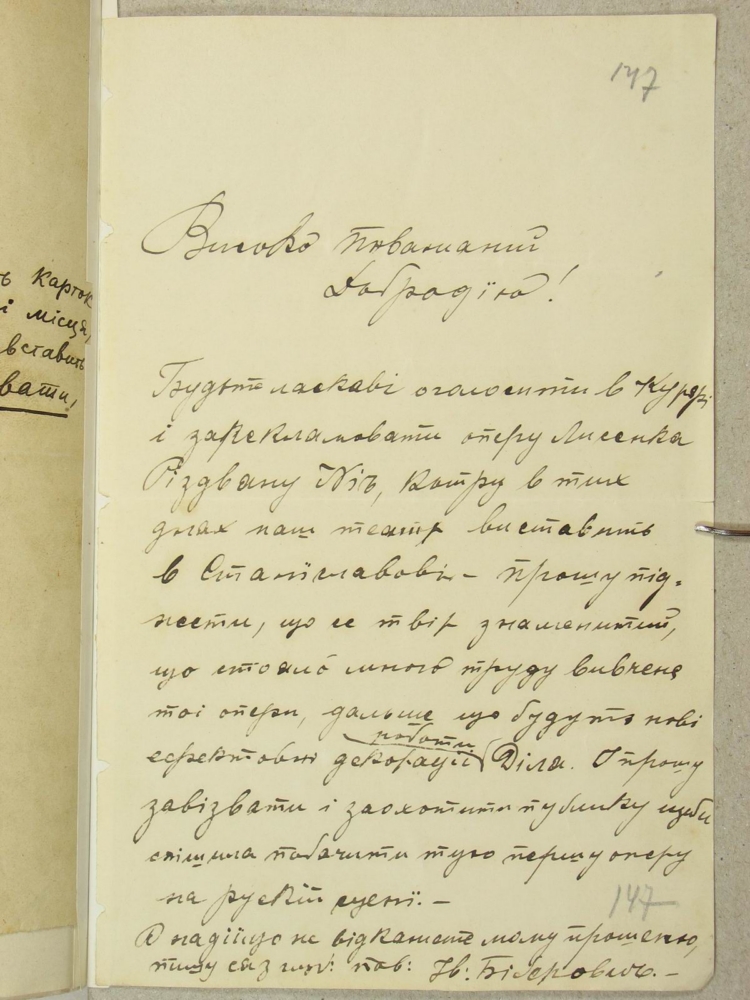 147
ъ карток
і місця,
вставить
вати,
Високо поважаний
Добродїю!
Будьте ласкаві оголосити в Курєрі
і зарекламовати оперу Лисенка
Різдвяну Ніч, котру в тих
днях наш театр виставить
в Станїславові – прошу під-
нести, що се твір знаменитий,
що стояло много труду вивченє
тоі опери, дальше що будуть нові
роботи
ефектовні декорациї Діла. І прошу
завізвати і заохотити публику щоби
спішила побачити тую першу оперу
на рускій сценї. –
147
В надїї що не відкажете мому прошеню,
пишу ся з пов: Ів: Біберович. –